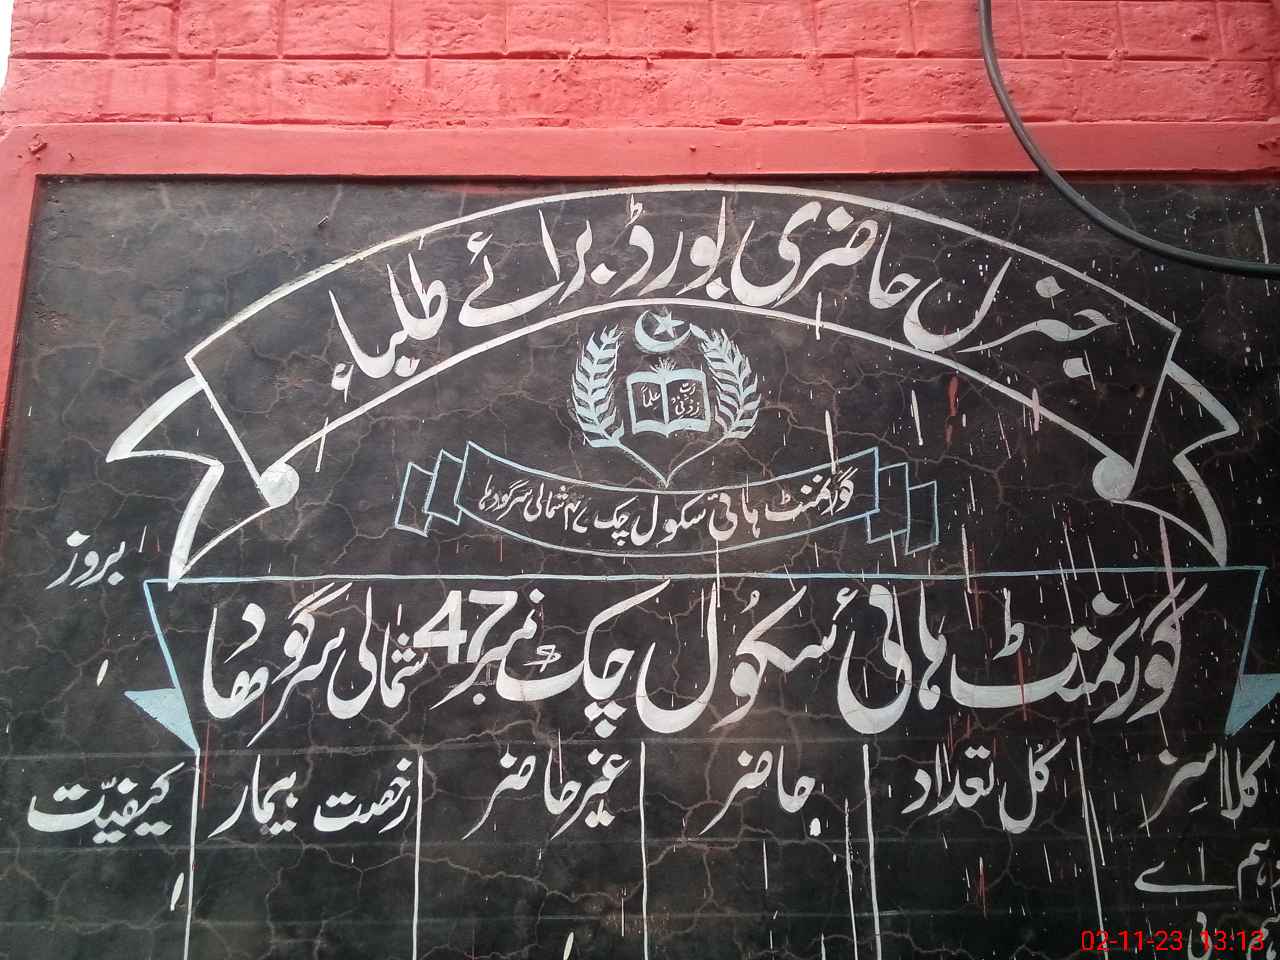 جنرل حاضری بورڈ برائے طلباء
رَبِّ
زِدْنِیْ
عِلْمًا
گورنمنٹ ہائی سکول چک ۴۷ شمالی سرگودہا
بروز
گورنمنٹ ہائی سکول چک نمبر 47 شمالی سرگودھا
کلاسِز کُل تعداد حاضر غیر حاضر رخصت بیمار کیفیّت
دہم اے
02-11-23 13:13